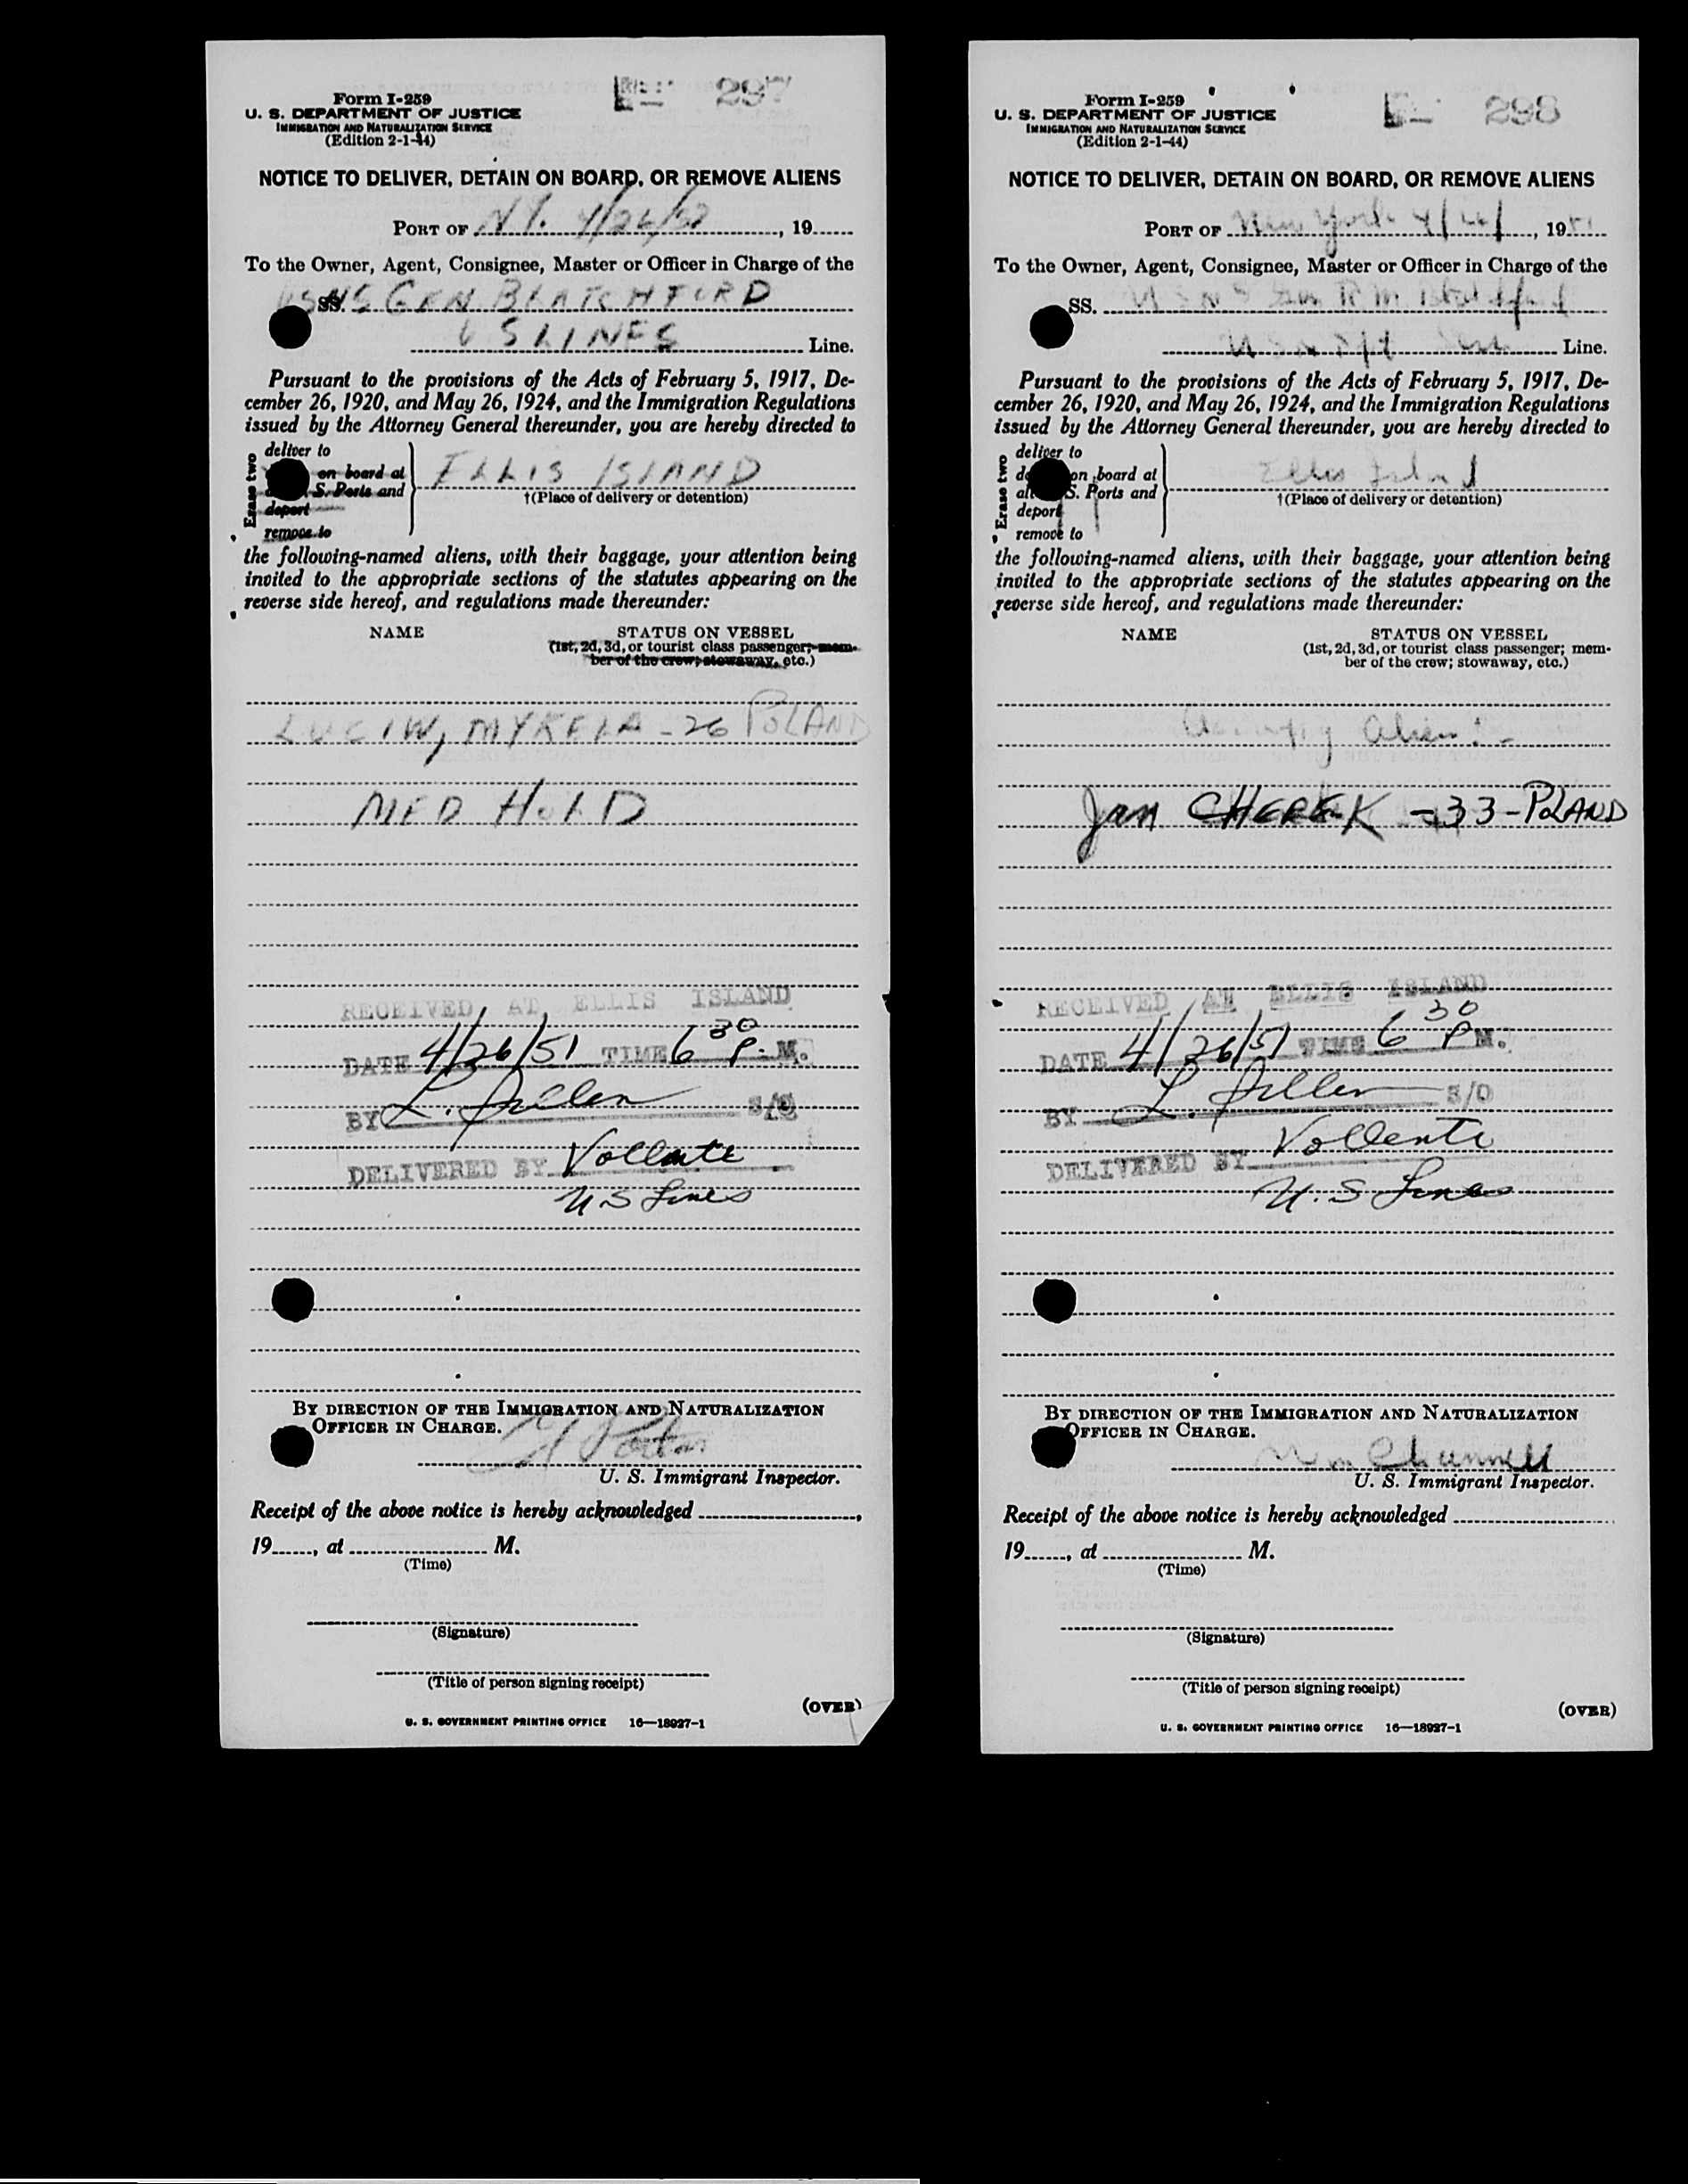 Form I-259
U. S. DEPARTMENT OF JUSTICE
IMMIGRATION AND NATURALIZATION SERVICE
(Edition 2-1-44)
297
NOTICE TO DELIVER, DETAIN ON BOARD, OR REMOVE ALIENS
PORT OF N.Y. 4/26/ , 19
To the Owner, Agent, Consignee, Master or Officer in Charge of the
SS. USNS GEN BLATCHFORD
US LINES Line.
Pursuant to the provisions of the Acts of February 5, 1917, De-
cember 26, 1920, and May 26, 1924, and the Immigration Regulations
issued by the Attorney General thereunder, you are hereby directed to
Erase two
deliver to
on board at
S. Ports and
deport
remove to
ELLIS ISLAND
†(Place of delivery or detention)
the following-named aliens, with their baggage, your attention being
invited to the appropriate sections of the statutes appearing on the
reverse side hereof, and regulations made thereunder:
NAME STATUS ON VESSEL
(1st, 2d, 3d, or tourist class passenger; mem-
ber of the crew; stowaway, etc.)
LUCIW, MYKOLA - 26 POLAND
MED HOLD
RECEIVED AT ELLIS ISLAND
DATE 4/26/51 TIME 6 30 P. M.
BY L. S/O
DELIVERED BY Vollente
U S Lines
BY DIRECTION OF THE IMMIGRATION AND NATURALIZATION
OFFICER IN CHARGE.
U. S. Immigrant Inspector.
Receipt of the above notice is hereby acknowledged ,
19 , at M.
(Time)
(Signature)
(Title of person signing receipt)
(OVER)
U. S. GOVERNMENT PRINTING OFFICE 16—18927-1
Form I-259
U. S. DEPARTMENT OF JUSTICE
IMMIGRATION AND NATURALIZATION SERVICE
(Edition 2-1-44)
298
NOTICE TO DELIVER, DETAIN ON BOARD, OR REMOVE ALIENS
PORT OF New York 4/26/ , 1951
To the Owner, Agent, Consignee, Master or Officer in Charge of the
SS. USNS Gen R M Blatchford
Line.
Pursuant to the provisions of the Acts of February 5, 1917, De-
cember 26, 1920, and May 26, 1924, and the Immigration Regulations
issued by the Attorney General thereunder, you are hereby directed to
Erase two
deliver to
on board at
S. Ports and
deport
remove to
Ellis Island
†(Place of delivery or detention)
the following-named aliens, with their baggage, your attention being
invited to the appropriate sections of the statutes appearing on the
reverse side hereof, and regulations made thereunder:
NAME STATUS ON VESSEL
(1st, 2d, 3d, or tourist class passenger; mem-
ber of the crew; stowaway, etc.)
Alien:-
Jan CHEREK - 33 - POLAND
RECEIVED AT ELLIS ISLAND
DATE 4/26/51 TIME 6 30 P M.
BY L. S/O
DELIVERED BY Vollente
U. S Lines
BY DIRECTION OF THE IMMIGRATION AND NATURALIZATION
OFFICER IN CHARGE.
U. S. Immigrant Inspector.
Receipt of the above notice is hereby acknowledged
19 , at M.
(Time)
(Signature)
(Title of person signing receipt)
(OVER)
U. S. GOVERNMENT PRINTING OFFICE 16—18927-1